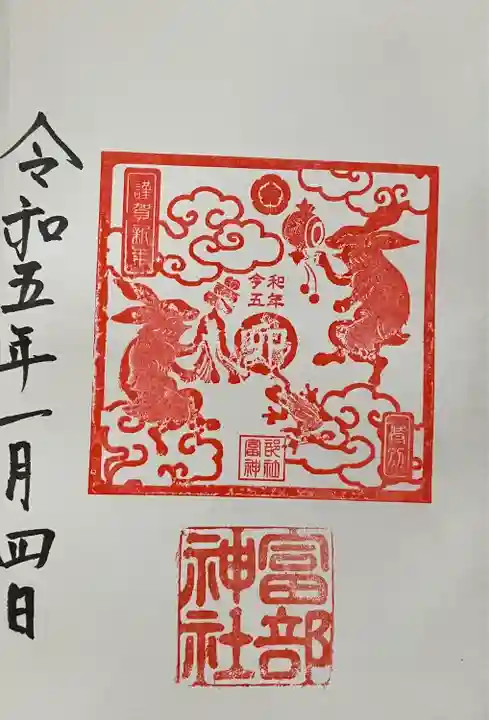 令和五年一月四日
謹賀新年
令和
五年
卯
富部
神社
富部
神社